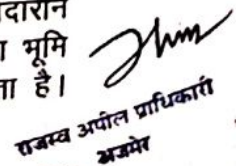 दारान
भूमि
ता है।
राजस्व अपील प्राधिकारी
अजमेर